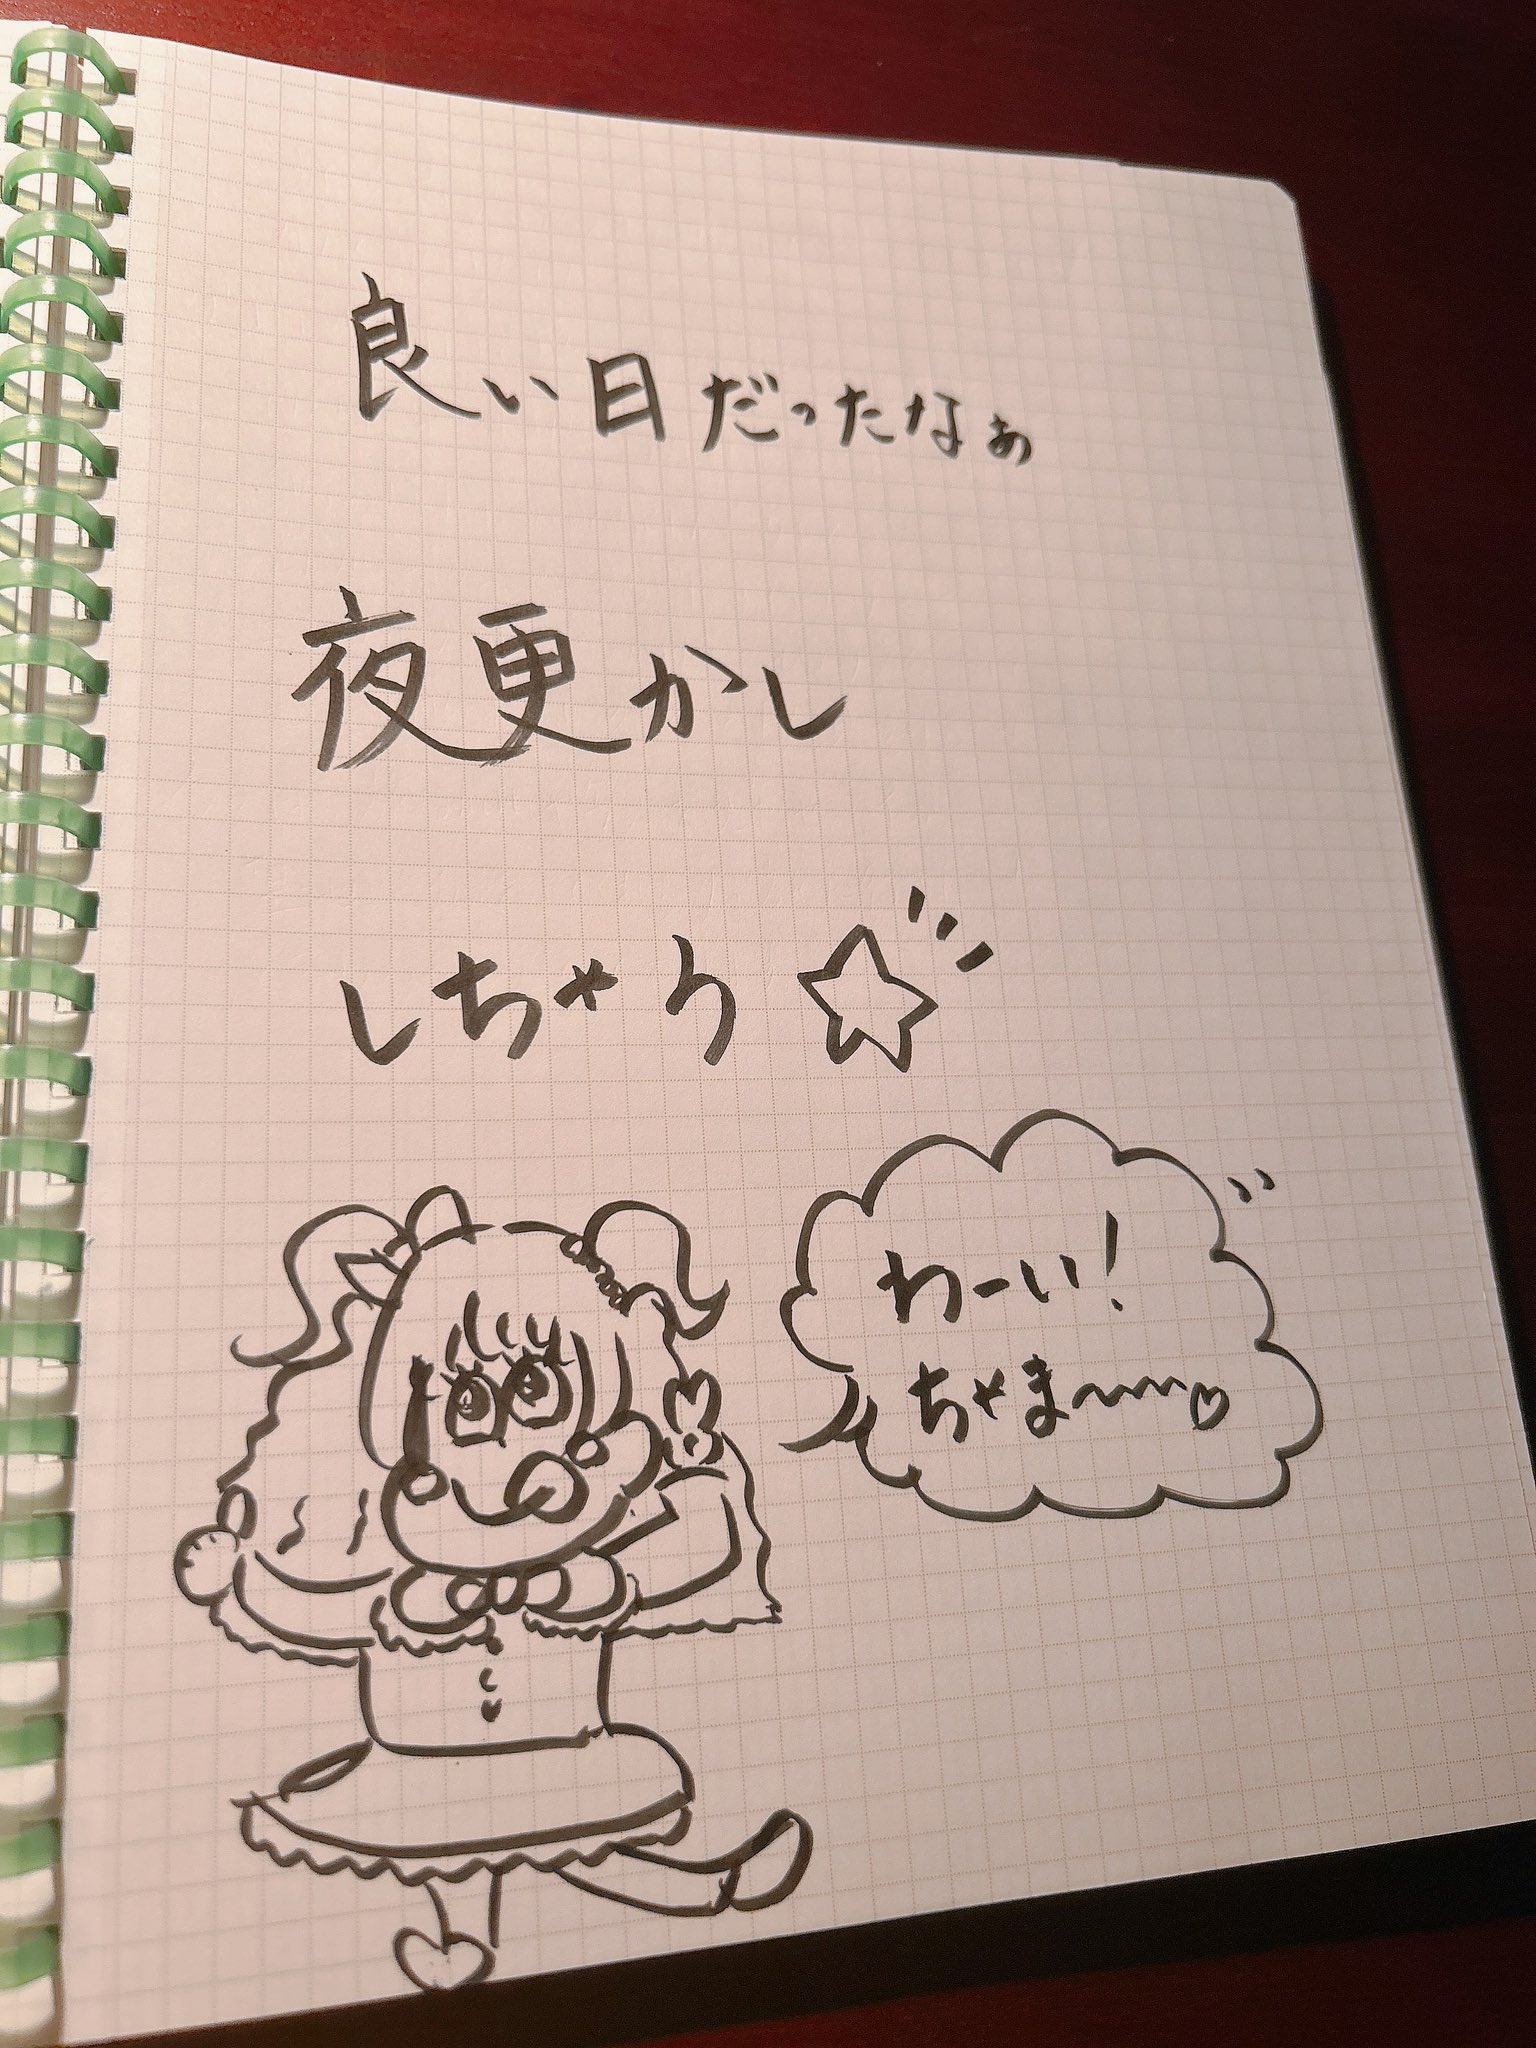 良い日だったなぁ
夜更かし
しちゃう☆
わーい!
ちゃま〜〜〜♡